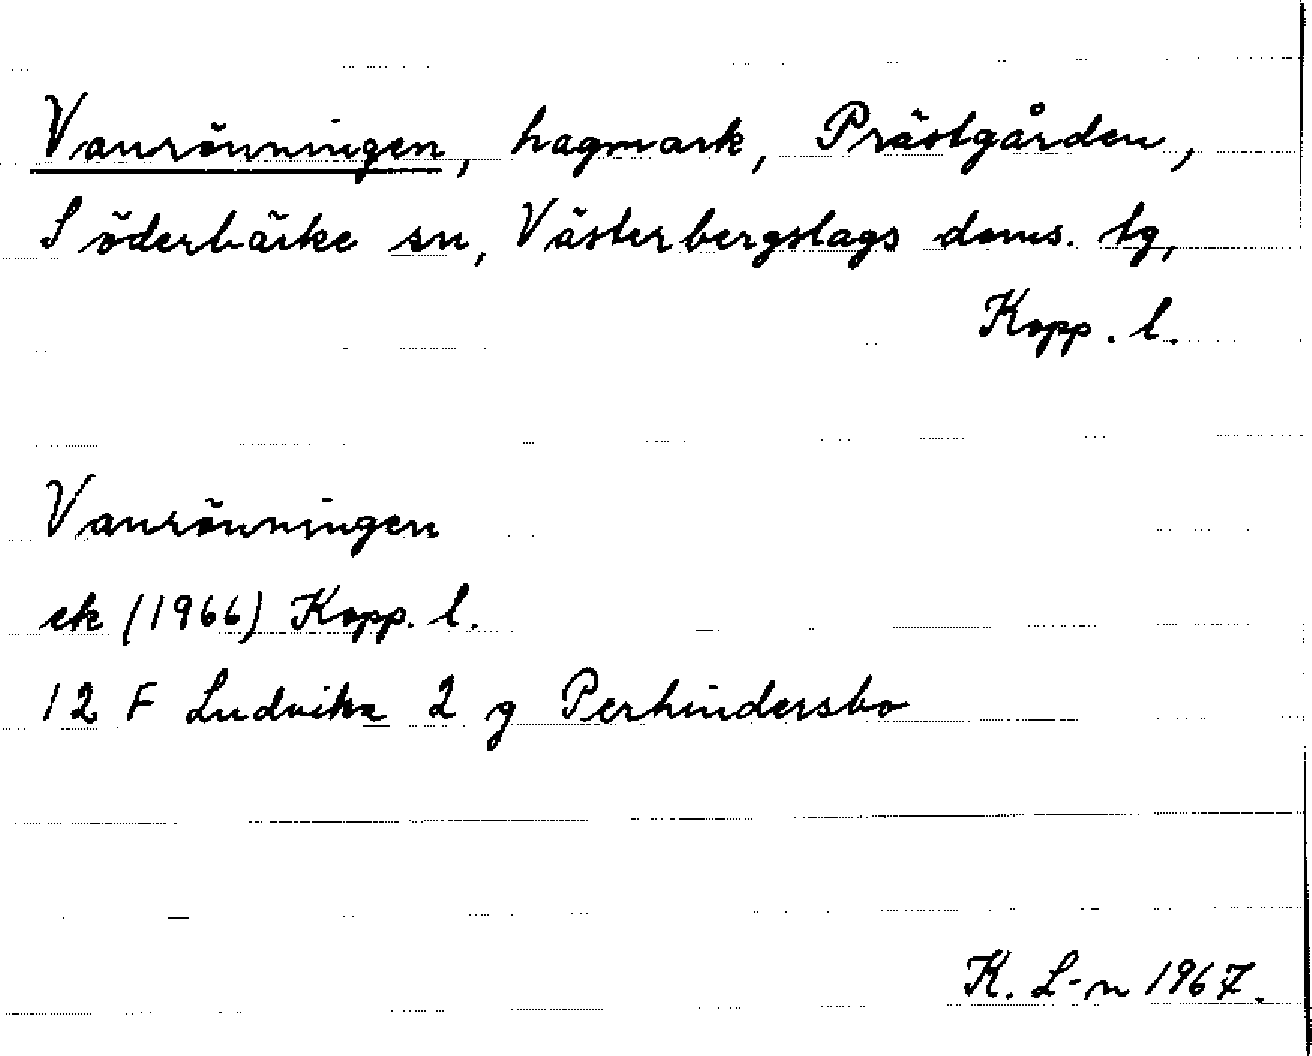 Vanrönningen, hagmark, Prästgården,
Söderbärke sn, Västerbergslags doms. tg,
Kopp. l.
Vanrönningen
ek (1966) Kopp. l.
12 F Ludvika 2 g Perhindersbo
K. L-n 1967.